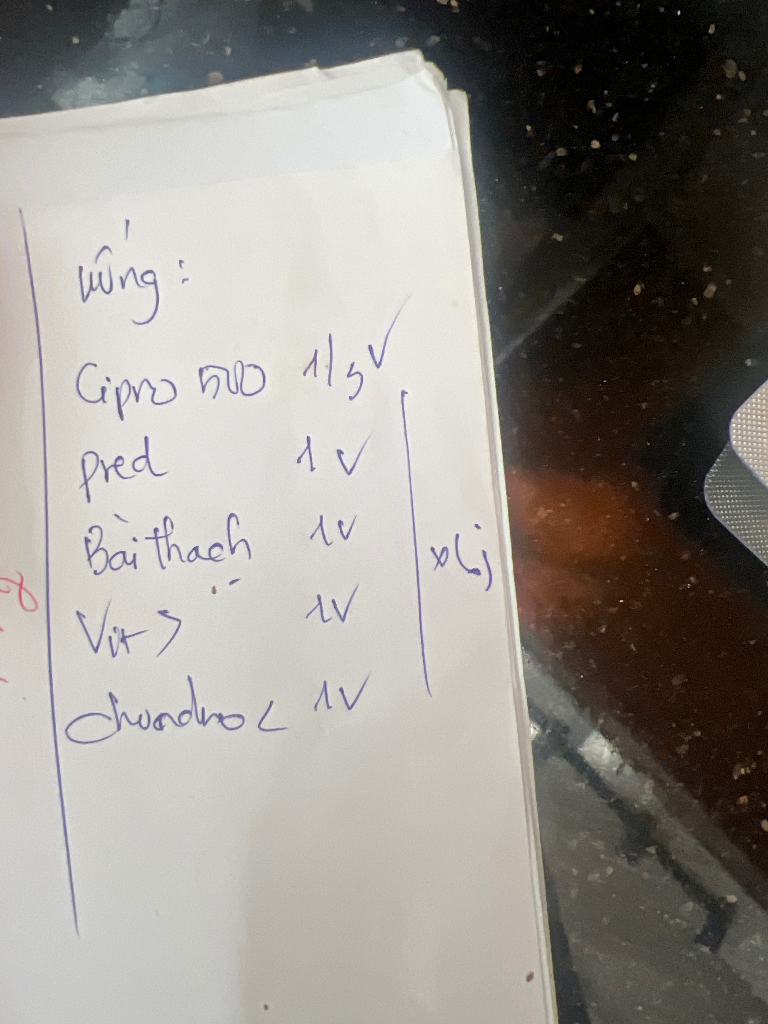 Uống:
Cipro 500 1/3 V
pred 1 V
Bài thạch 1V
Vit 1V
chondro 1V